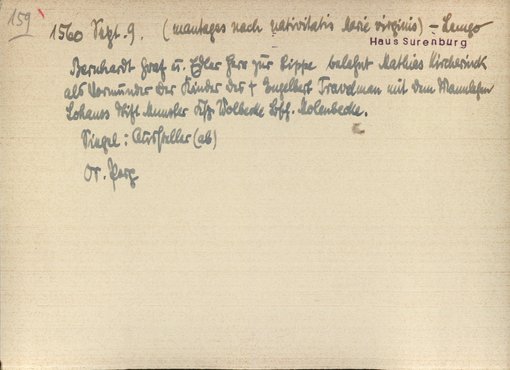 159
1560 Sept. 9. (mantages nach nativitatis Marie virginis) – Lemgo
Haus Surenburg
Bernhardt Graf u. Edler Herr zur Lippe belehnt Mathias Kircherinck
als Vormünder der Kinder des † Engelbert Travelman mit dem Mannlehen
Lohaus Stift Munster Ksp. Wolbecke Bsch. Molenbecke.
Siegel: Aussteller (ab)
Or. Perg